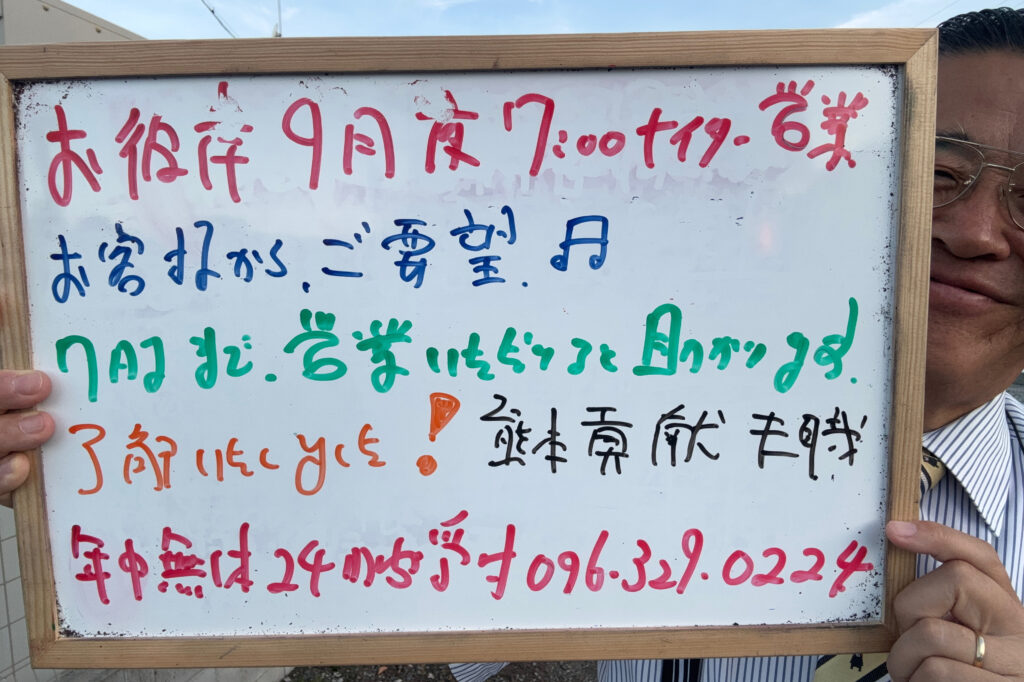 お彼岸9月度7:00ナイター営業
お客様から、ご要望、♫
7時まで、営業いただけると助かります、
了解いたしました！ 熊本貢献 天職
年中無休24時間受付096.329.0224